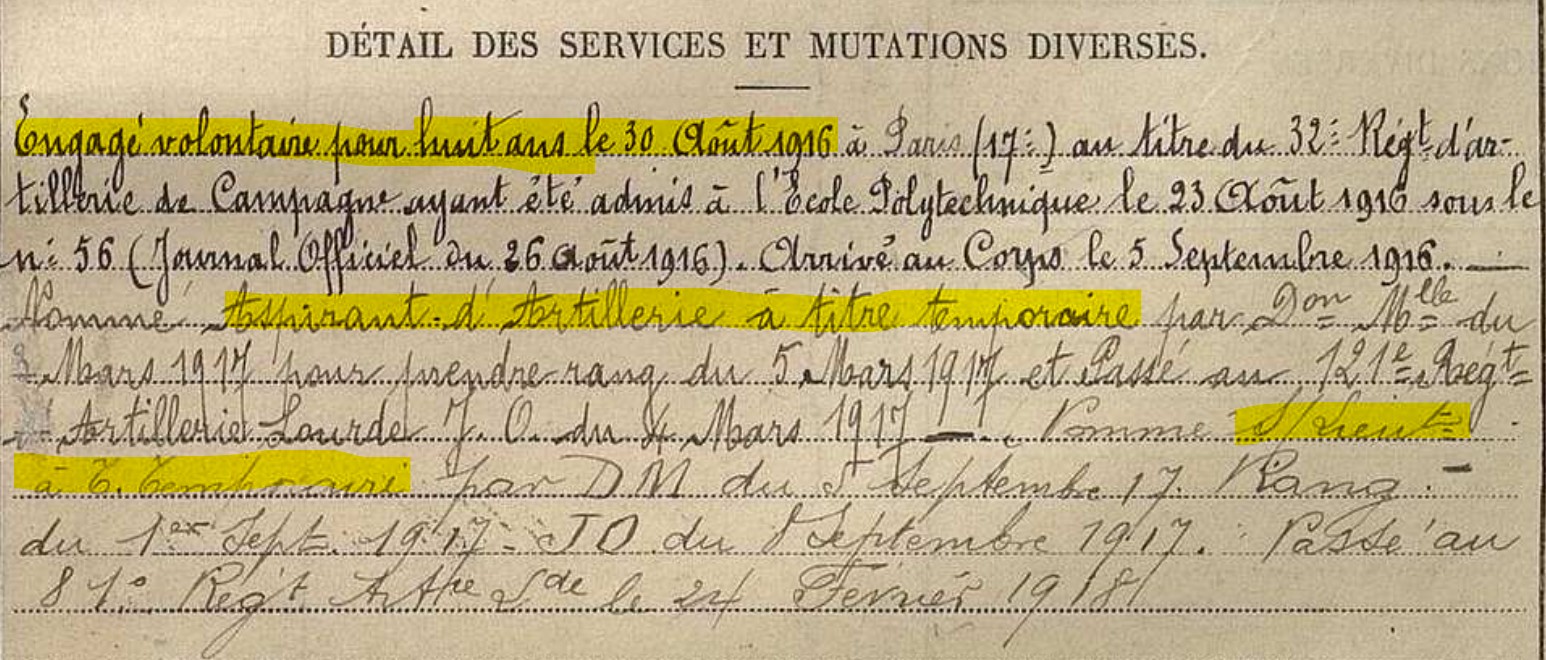 DÉTAIL DES SERVICES ET MUTATIONS DIVERSES.
Engagé volontaire pour huit ans le 30 Août 1916 à Paris (17e) au titre du 32e Régt d'ar-
tillerie de Campagne ayant été admis à l'École Polytechnique le 23 Août 1916 sous le
n° 56 (Journal Officiel du 26 août 1916). Arrivé au Corps le 5 Septembre 1916. —
Nommé Aspirant d'Artillerie à titre temporaire par Don Mlle du
Mars 1917 pour prendre rang du 5 Mars 1917 et Passé au 121e Régt
Artillerie Lourde J. O. du 4 Mars 1917 —. Nommé S/Lieut
à T. Temporaire par DM du 5 Septembe 17. Rang. -
du 1er Sept. 1917 - JO du 8 Septembre 1917. Passé au
81e Regt Artie Lde le 24 Février 1918